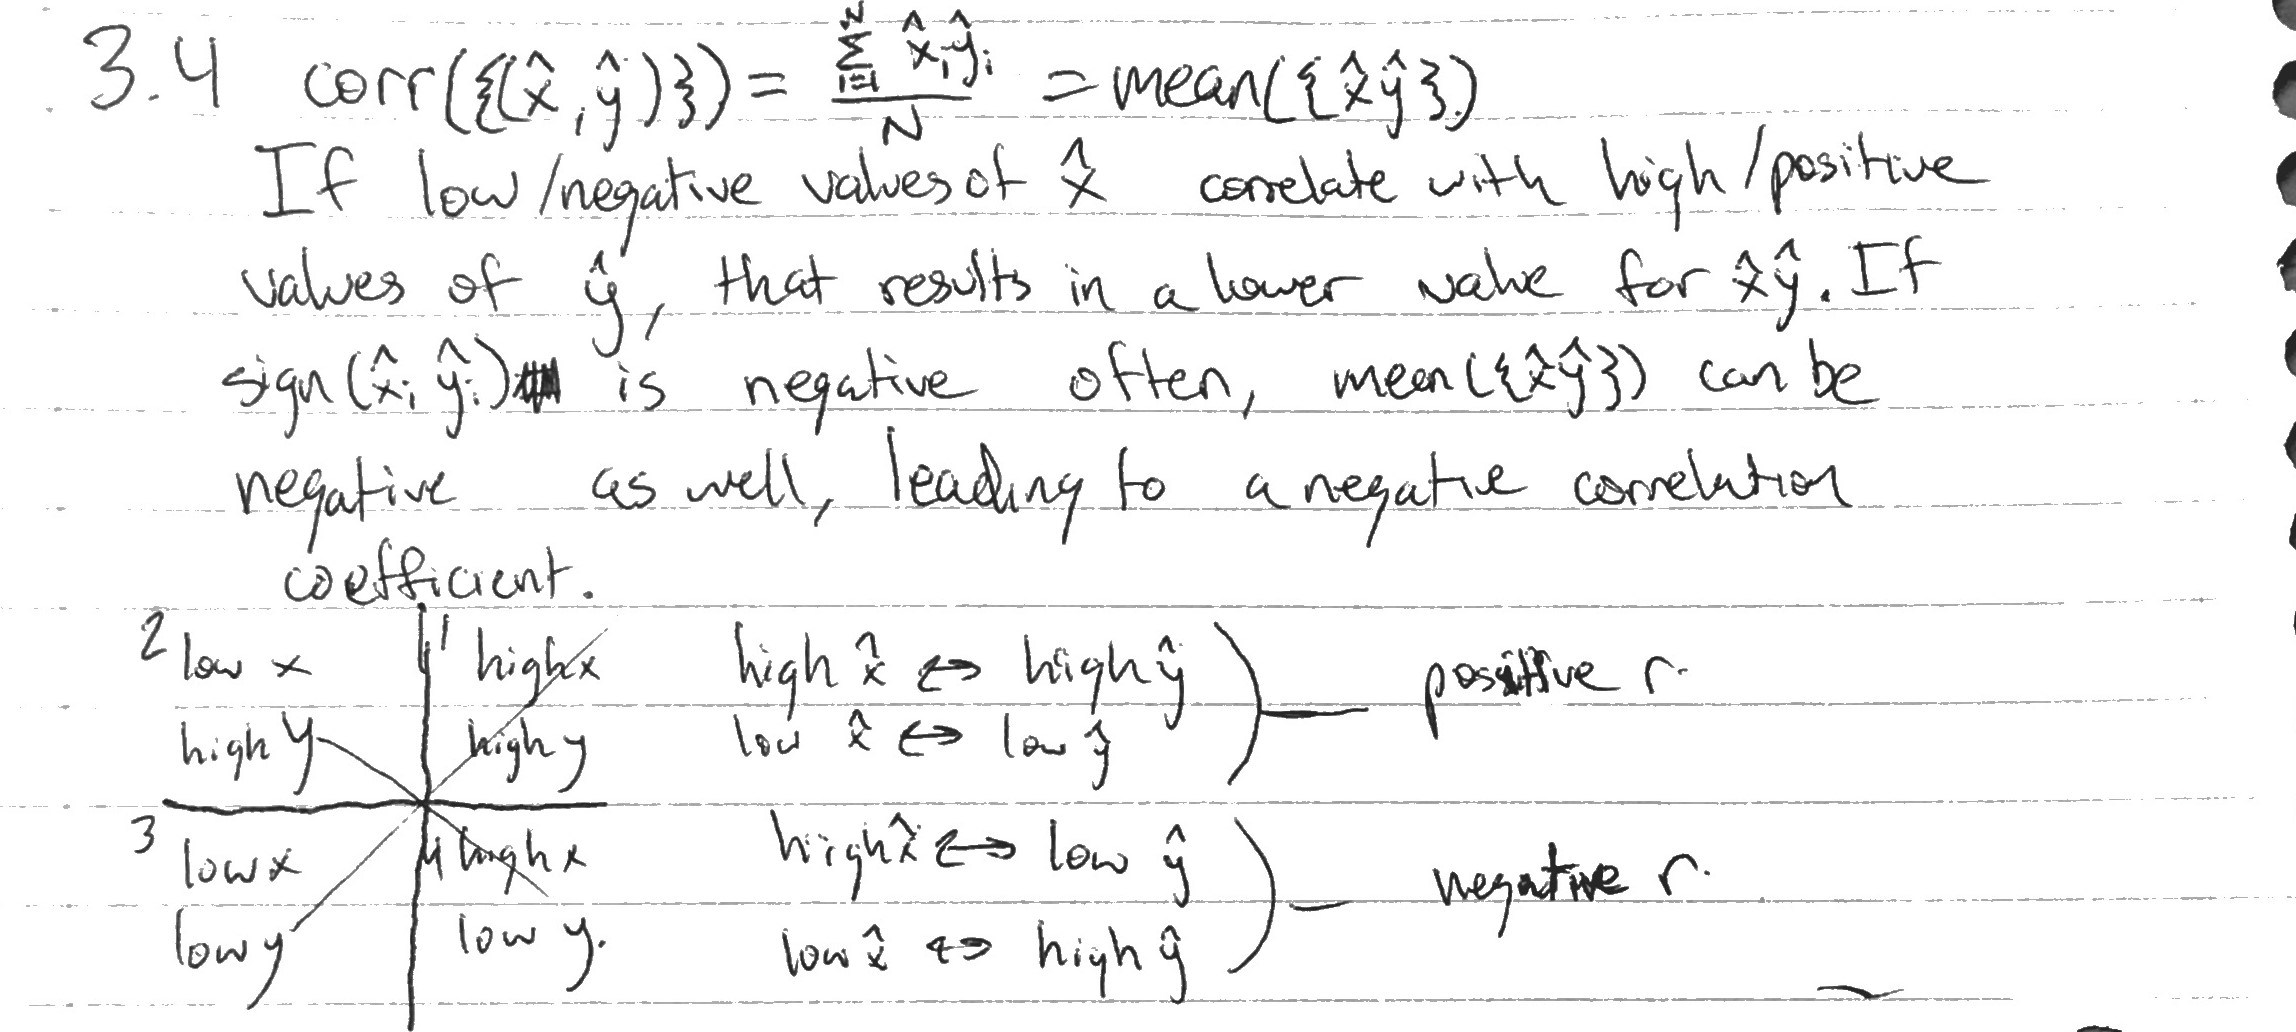 3.4 corr({(x̂,ŷ)}) = Σ_{i=1}^{N} x̂ᵢŷᵢ / N = mean({x̂ŷ})
If low/negative values of x̂ correlate with high/positive
values of ŷ, that results in a lower value for x̂ŷ. If
sign(x̂ᵢ ŷᵢ) is negative often, mean({x̂ŷ}) can be
negative as well, leading to a negative correlation
coefficient.
2 low x 1 high x high x̂ ↔ high ŷ
high y high y low x̂ ↔ low ŷ
positive r.
3 low x 4 high x high x̂ ↔ low ŷ
low y low y. low x̂ ↔ high ŷ
negative r.